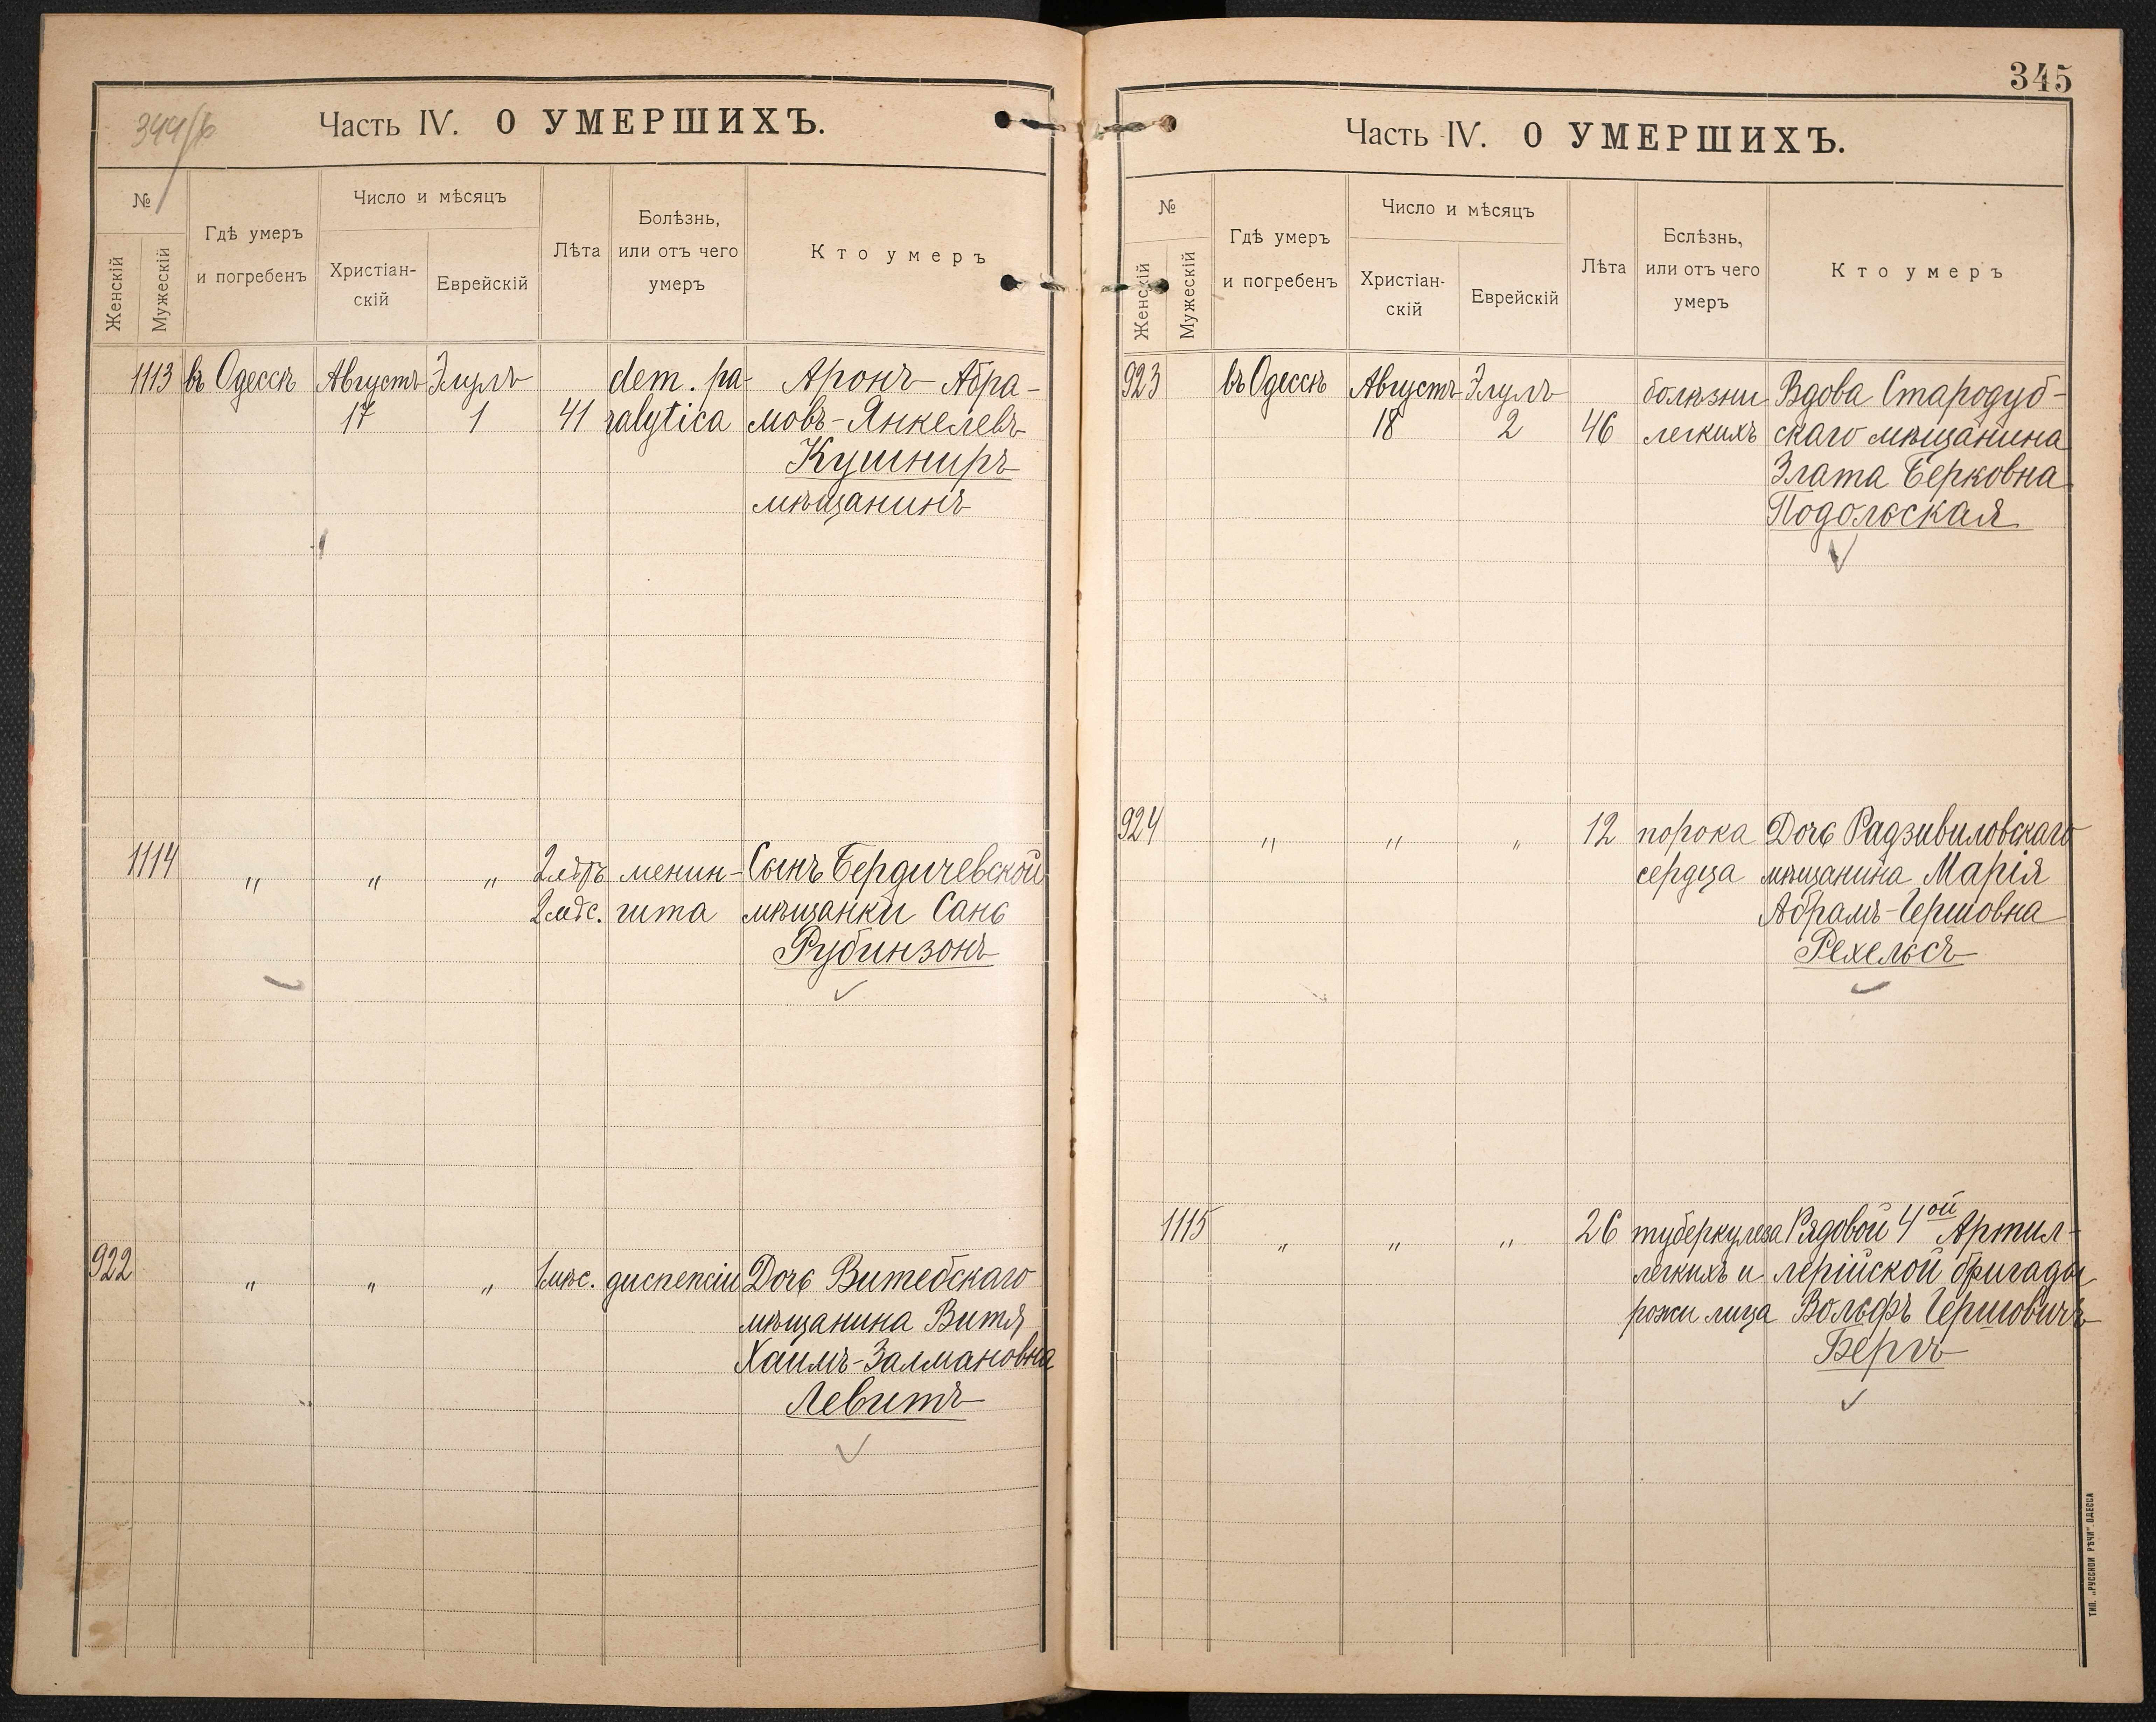 344/б
Часть IV. О УМЕРШИХЪ.
№
Женскій
Мужескій
Гдѣ умеръ
и погребенъ
Число и мѣсяцъ
Христіан-
скій
Еврейскій
Лѣта
Болѣзнь,
или отъ чего
умеръ
Кто умеръ
1113 въ Одессѣ Августъ Элулъ dem. pa- Аронъ-Абра-
17 1 41 ralytica мовъ-Янкелевъ
Кушниръ
мѣщанинъ
1114 " " " 2 лѣтъ менин- Сынъ Бердичевской
2 мѣс. гита мѣщанки Сань
Рубинзонъ
922 " " " 1 мѣс. диспепсіи Дочь Витебскаго
мѣщанина Витя
Хаимъ-Залмановна
Левитъ
345
Часть IV. О УМЕРШИХЪ.
№
Женскій
Мужескій
Гдѣ умеръ
и погребенъ
Число и мѣсяцъ
Христіан-
скій
Еврейскій
Лѣта
Бслѣзнь,
или отъ чего
умеръ
Кто умеръ
923 въ Одессѣ Августъ Элулъ болѣзни Вдова Стародуб-
18 2 46 легкихъ скаго мѣщанина
Злата Берковна
Подольская
924 " " " 12 порока Дочь Радзивиловскаго
сердца мѣщанина Марія
Абрамъ-Гершовна
Рехельсъ
1115 " " " 26 туберкулеза Рядовой 4ой Артил-
легкихъ и лерійской бригады
рожи лица Вольфъ Гершовичъ
Бергъ
ТИП. „РУССКОЙ РѢЧИ" ОДЕССА